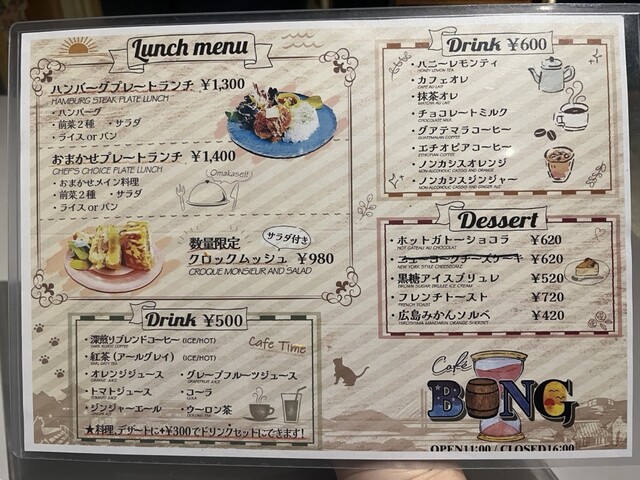 Lunch menu
ハンバーグプレートランチ ¥1,300
HAMBURG STEAK PLATE LUNCH
・ハンバーグ
・前菜2種 ・サラダ
・ライス or パン
おまかせプレートランチ ¥1,400
CHEF'S CHOICE PLATE LUNCH
・おまかせメイン料理
・前菜2種 ・サラダ
・ライス or パン
Omakase!!
数量限定
サラダ付き
クロックムッシュ ¥980
CROQUE MONSIEUR AND SALAD
Drink ¥500
Cafe Time
・深煎りブレンドコーヒー (ICE/HOT)
・紅茶 (アールグレイ) (ICE/HOT)
EARL GREY TEA
・オレンジジュース ・グレープフルーツジュース
ORANGE JUICE GRAPEFRUIT JUICE
・トマトジュース ・コーラ
TOMATO JUICE COLA
・ジンジャーエール ・ウーロン茶
GINGER ALE OOLONG TEA
★料理、デザートに+¥300でドリンクセットにできます!
Drink ¥600
・ハニーレモンティ
HONEY LEMON TEA
・カフェオレ
CAFE AU LAIT
・抹茶オレ
MATCHA AU LAIT
・チョコレートミルク
CHOCOLATE MILK
・グアテマラコーヒー
GUATEMALAN COFFEE
・エチオピアコーヒー
ETHIOPIAN COFFEE
・ノンカシスオレンジ
NON-ALCOHOLIC CASSIS AND ORANGE
・ノンカシスジンジャー
NON-ALCOHOLIC CASSIS AND GINGER ALE
Dessert
・ホットガトーショコラ ¥620
HOT GATEAU AU CHOCOLAT
・ニューヨークチーズケーキ ¥620
NEW YORK STYLE CHEESECAKE
・黒糖アイスブリュレ ¥520
BROWN SUGAR BRULEE ICE CREAM
・フレンチトースト ¥720
FRENCH TOAST
・広島みかんソルベ ¥420
HIROSHIMA MANDARIN ORANGE SHERBET
Café
BONG
OPEN11:00 / CLOSED16:00